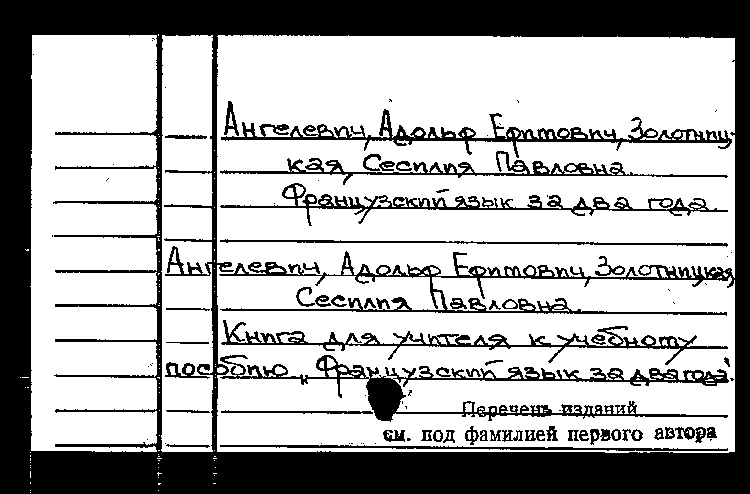 Ангелевич, Адольф Ефимович, Золотниц-
кая, Сесилия Павловна.
Французский язык за два года.
Ангелевич, Адольф Ефимович, Золотницкая,
Сесилия Павловна.
Книга для учителя к учебному
пособию „Французский язык за два года".
Перечень изданий
см. под фамилией первого автора